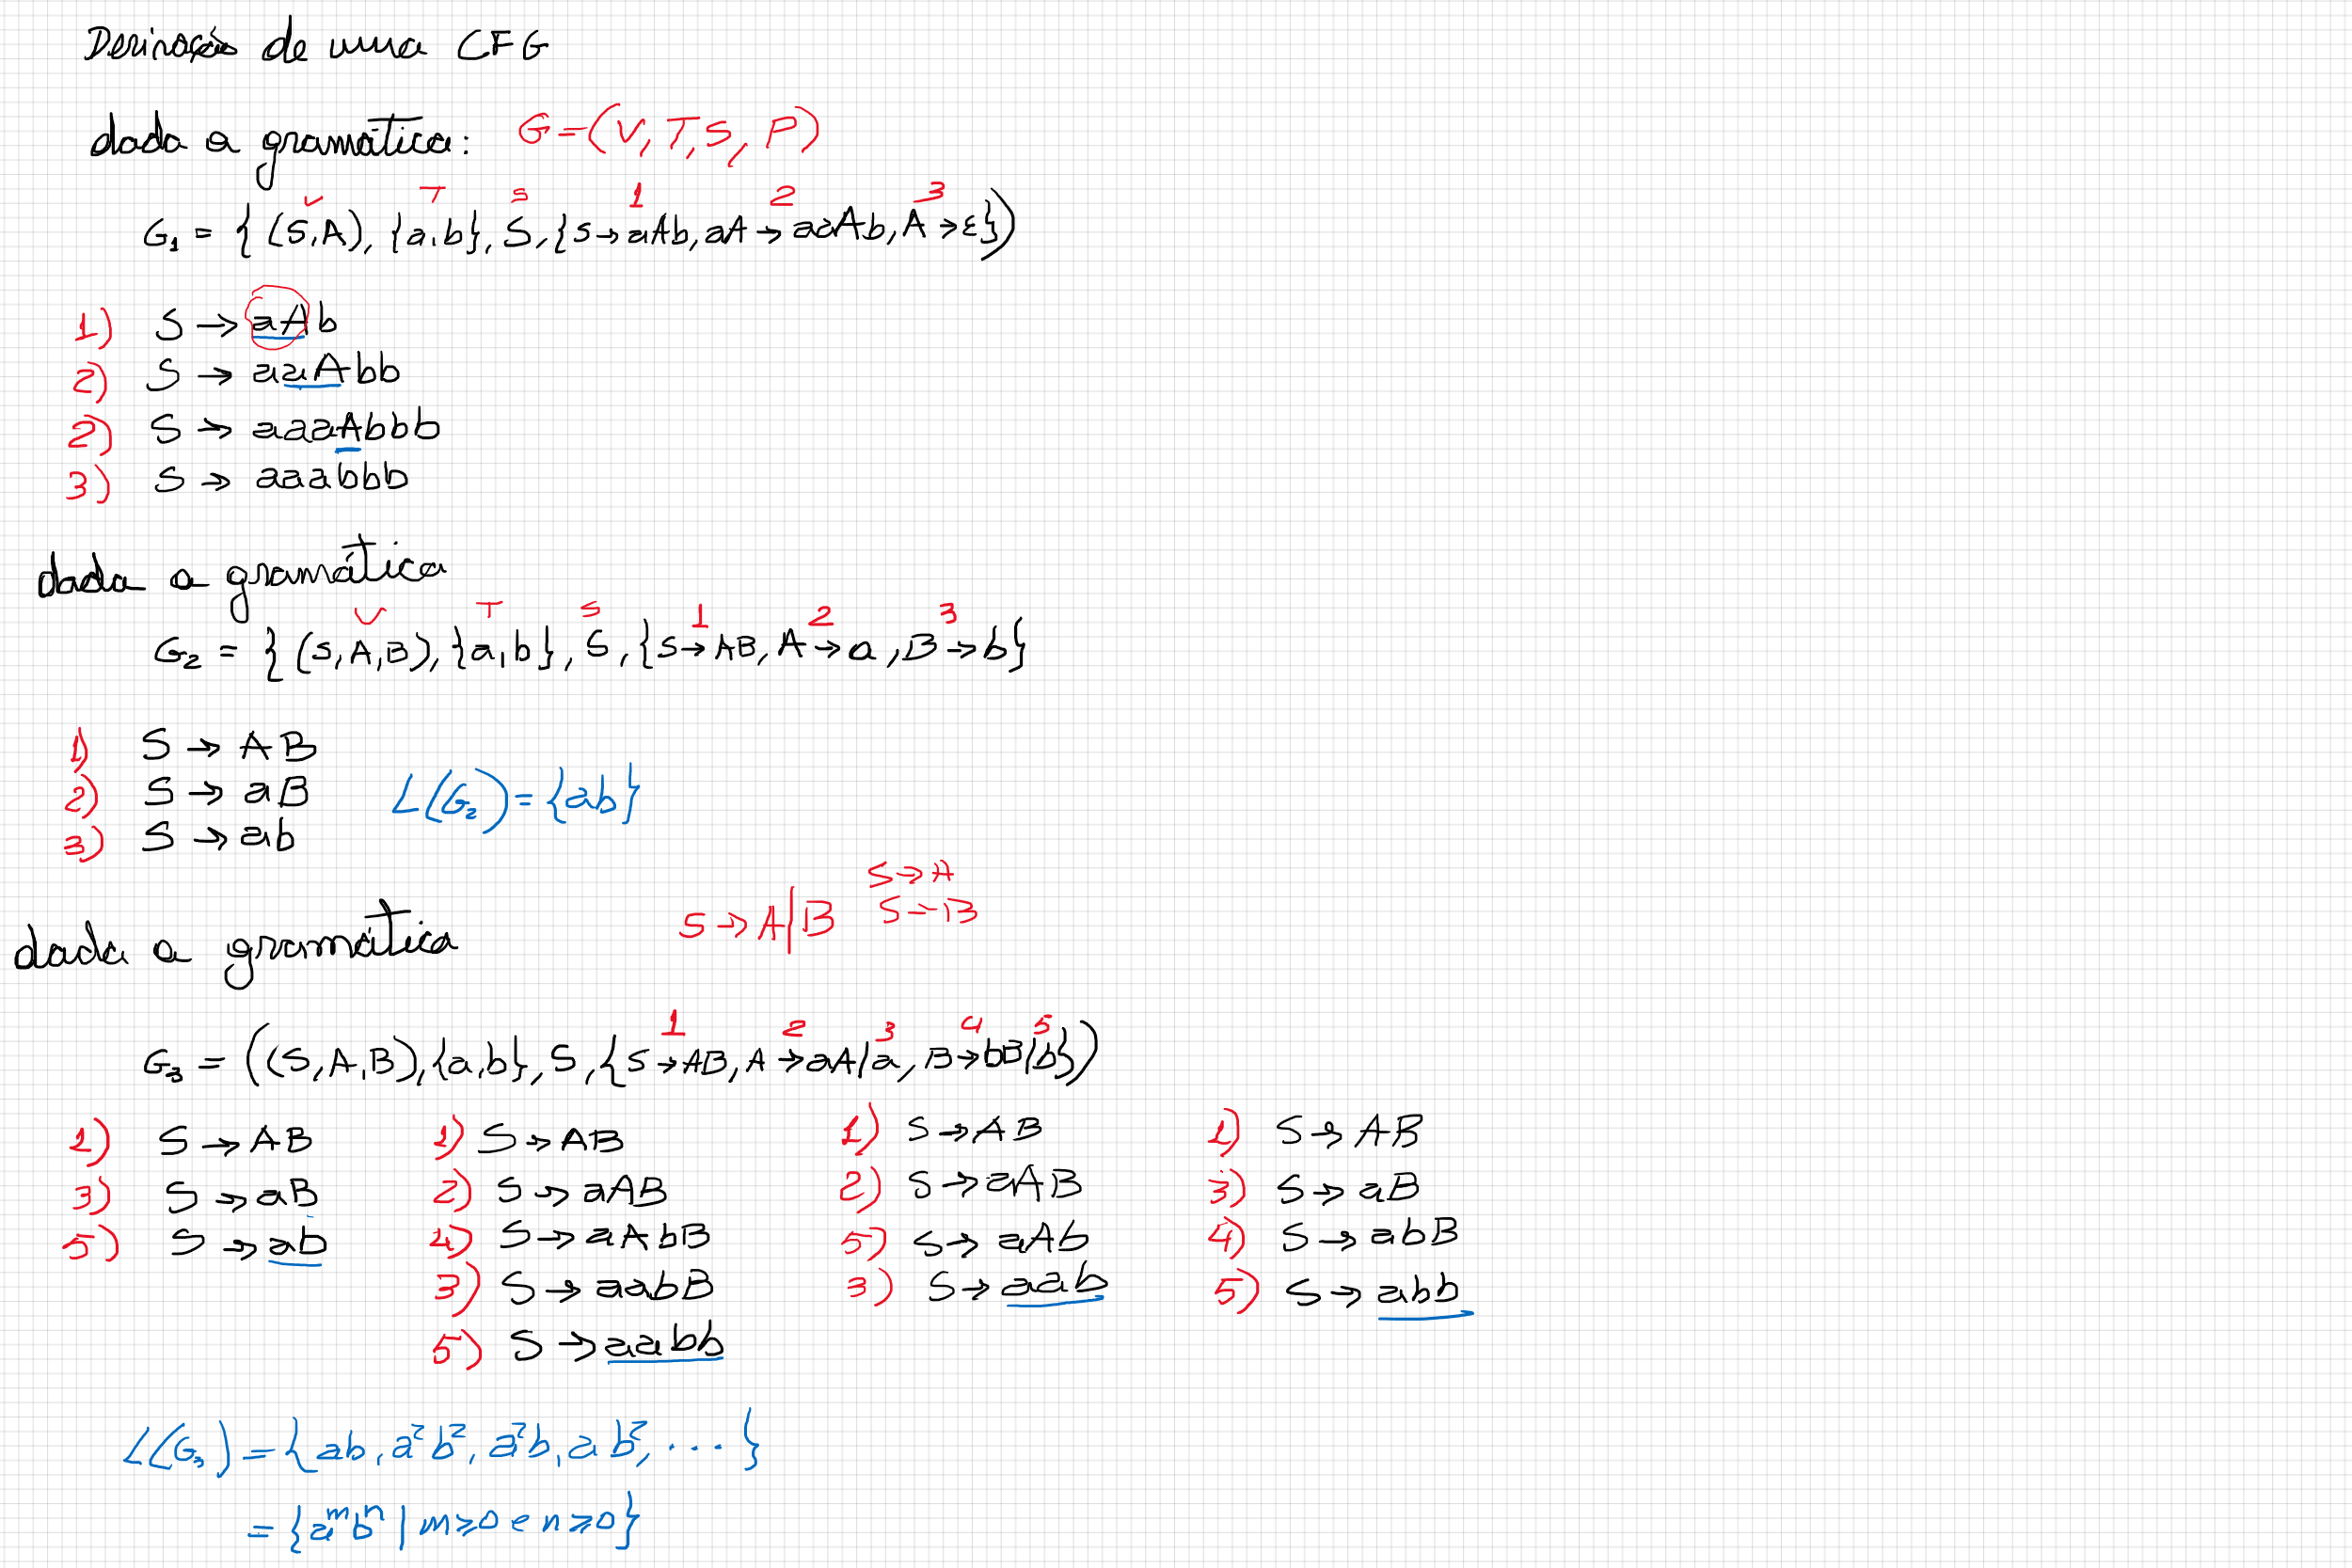 Derivação de uma CFG
dada a gramática: G=(V, T, S, P)
V T S 1 2 3
G₁ = { (S,A), {a,b}, S, {S→aAb, aA→aaAb, A→ε})
1) S→aAb
2) S→aaAbb
2) S→aaaAbbb
3) S→aaabbb
dada a gramática
V T S 1 2 3
G₂ = { (S,A,B), {a,b}, S, {S→AB, A→a, B→b}
1) S→AB
2) S→aB
3) S→ab
L(G₂)={ab}
S→A|B
S→A
S→B
dada a gramática
1 2 3 4 5
G₃ = ((S,A,B), {a,b}, S, {S→AB, A→aA|a, B→bB|b})
1) S→AB
3) S→aB
5) S→ab
1) S→AB
2) S→aAB
4) S→aAbB
3) S→aabB
5) S→aabb
1) S→AB
2) S→aAB
5) S→aAb
3) S→aab
1) S→AB
3) S→aB
4) S→abB
5) S→abb
L(G₃)={ab, a²b², a²b, ab², ...}
={aᵐbⁿ | m≥0 e n≥0}